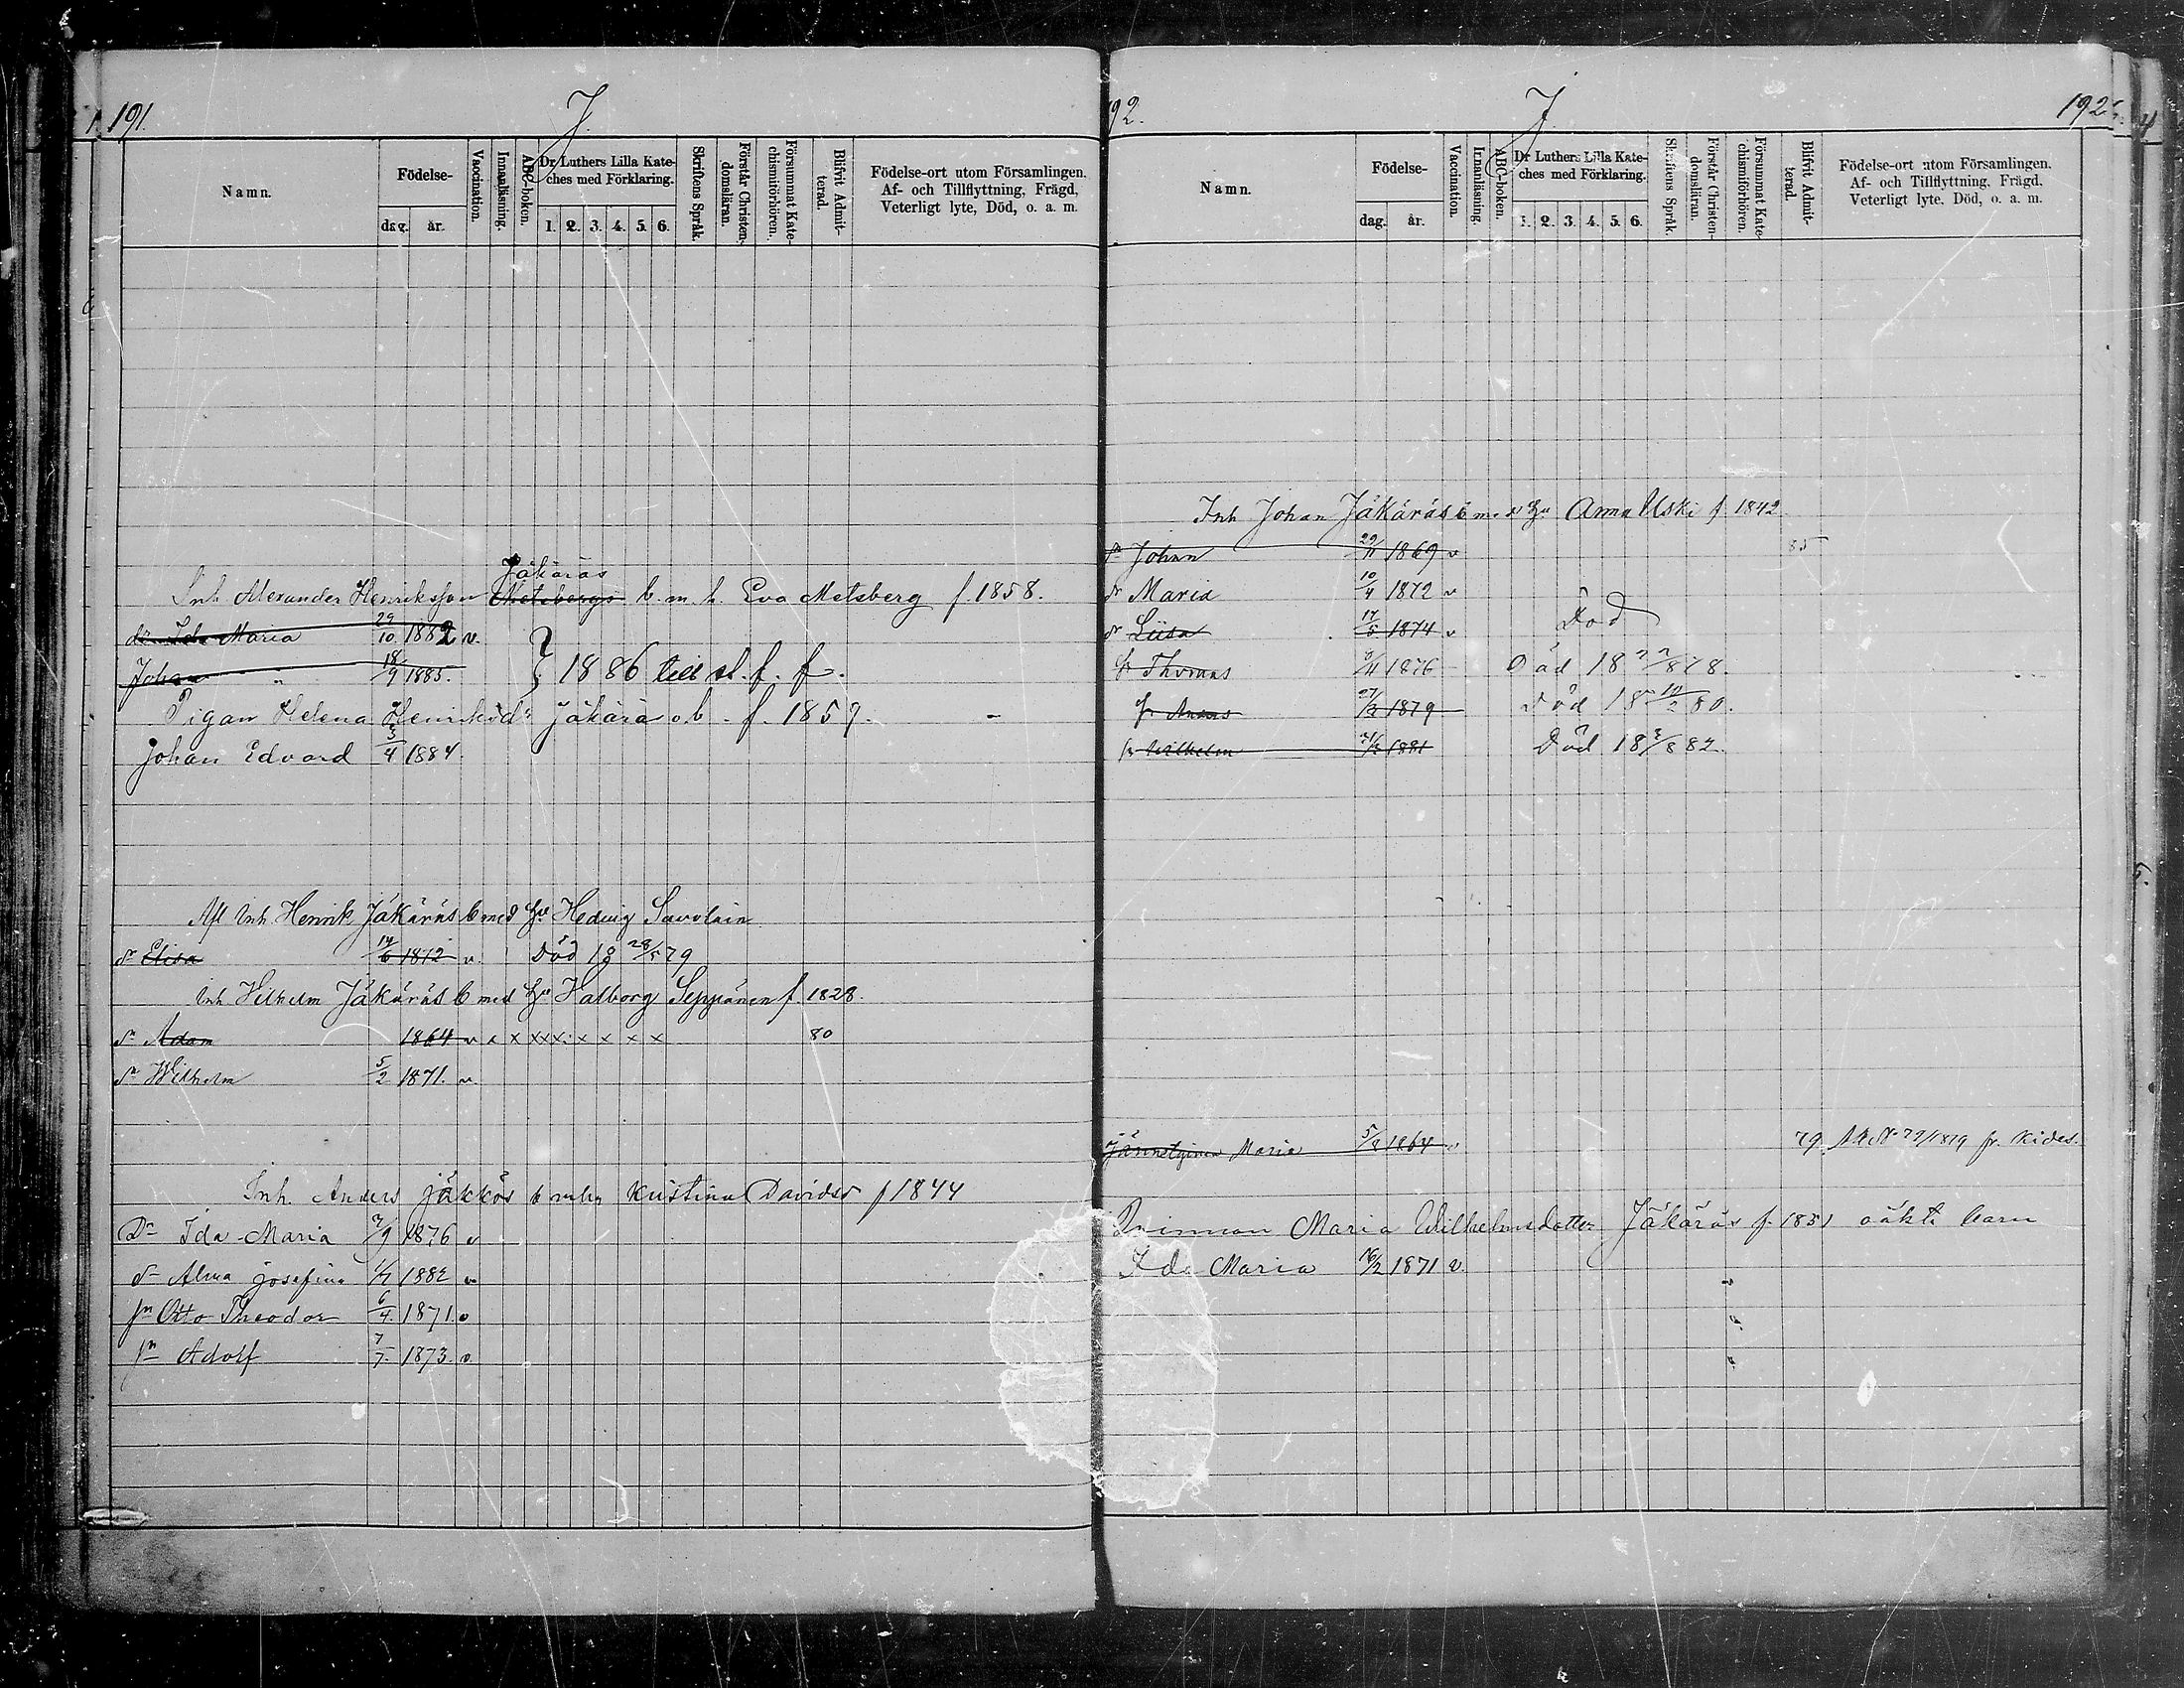 191.
J.
Namn.
Födelse-
dag. år.
Vaccination.
Innanläsning.
ABC-boken.
Dr Luthers Lilla Kate-
ches med Förklaring.
1. 2. 3. 4. 5. 6.
Skriftens Språk.
Förstår Christen-
domsläran.
Försummat Kate-
chismiförhören.
Blifvit Admit-
terad.
Födelse-ort utom Församlingen.
Af- och Tillflyttning, Frägd,
Veterligt lyte, Död, o. a. m.
Jäkäräs
Inh Alexander Henriksson Metsbergs b. m. h. Eva Metsberg f. 1858.
dr Ida Maria 29/10 1882 v.
Johan " 18/9 1885. } 1886 till sl. f. f.
Pigan Helena Henriksdr Jäkärä o b. f. 1859.
Johan Edvard 3/4 1884.
Afl Inh Henrik Jäkäräs b med Hu Hedvig Savolain
dr Elisa 14/6 1872 v. Död 18 28/5 79
Inh Wilhelm Jäkäräs b med Hu Walborg Seppänen f. 1828.
sn Adam 1864 v x x x x x x x x x x 80
sn Wilhelm 5/2 1871. v.
Inh. Anders Jäkkäs b m hu Kristina Davidsr f 1844
Dr Ida Maria 7/9 1876 v
dr Alma Josefina 1/7 1882 v
sn Otto Theodor 6/4 1871. v
sn Adolf 7/7 1873. v.
92.
J.
192
Namn.
Födelse-
dag. år.
Vaccination.
Innanläsning.
ABC-boken.
Dr Luthers Lilla Kate-
ches med Förklaring.
1. 2. 3. 4. 5. 6.
Skriftens Språk.
Förstår Christen-
domsläran.
Försummat Kate-
chismiförhören.
Blifvit Admit-
terad.
Födelse-ort utom Församlingen.
Af- och Tillflyttning, Frägd,
Veterligt lyte, Död, o. a. m.
Inh Johan Jäkäräs b m. d Hu Anna Uski f 1842
sn Johan 29/11 1869 v 85
dr Maria 10/4 1872 v
dr Liisa 17/5 1874 v Död
sn Thomas 1876 Död 18 22/8 78.
sn 27/3 1879 Död 18 80.
sn Wilhelm 1881 Död 18 82.
Maria 5/8 1864 v 79. 1879 fr. Kides.
Qvinnan Maria Wilhelmsdotter Jäkäräs f. 1851 oäkta barn
Ida Maria 16/2 1871 v.